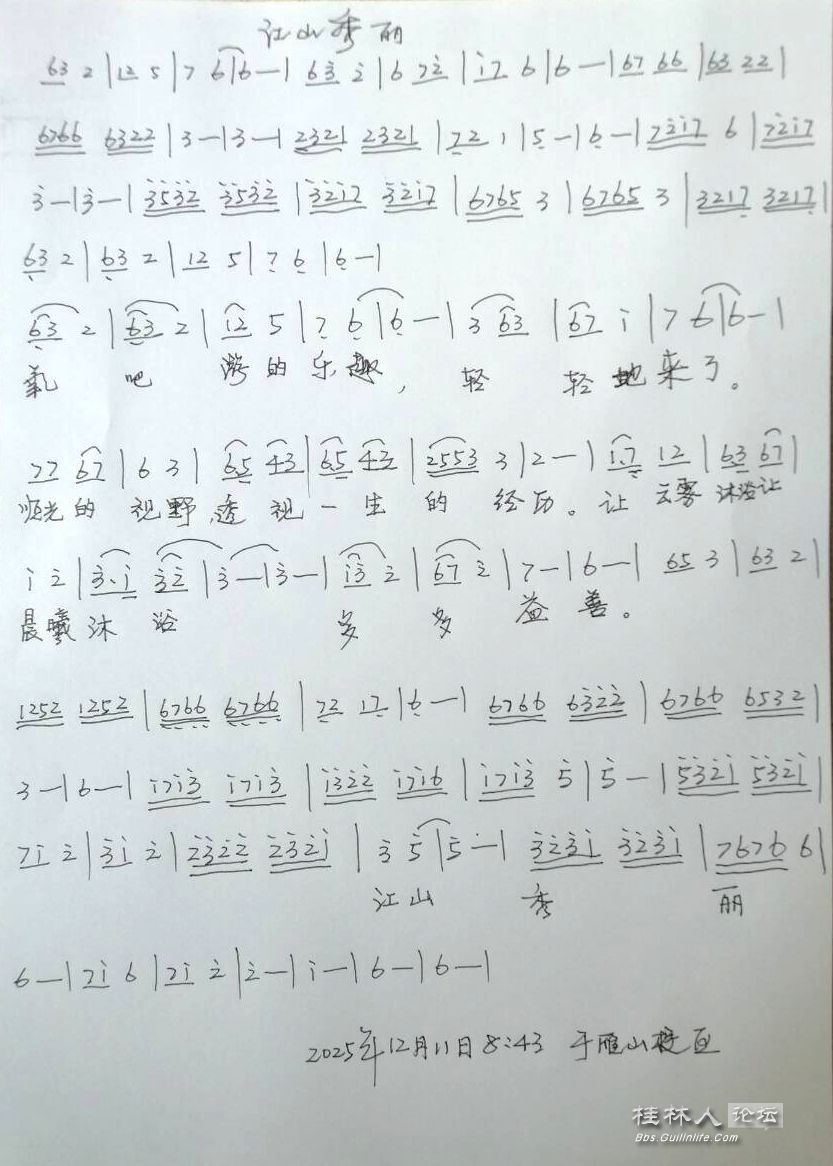 江山秀丽
63 2 | 12 5 | 7 6 | 6 — | 63 2 | 6 72 | 17 6 | 6 — | 67 66 | 63 22 |
6766 6322 | 3 — | 3 — | 2321 2321 | 72 1 | 5 — | 6 — | 7217 6 | 7217
3 — | 3 — | 3532 3532 | 3217 3217 | 6765 3 | 6765 3 | 3217 3217 |
63 2 | 63 2 | 12 5 | 7 6 | 6 — |
63 2 | 63 2 | 12 5 | 7 6 | 6 — | 3 63 | 67 1 | 7 6 | 6 — |
氧 吧 游的乐趣，轻 轻地来了。
77 67 | 6 3 | 65 43 | 65 43 | 2553 3 | 2 — | 17 12 | 63 67 |
顺光的视野，透视一生的经历。让云雾沐浴让
1 2 | 3·1 32 | 3 — | 3 — | 13 2 | 67 2 | 7 — | 6 — | 65 3 | 63 2 |
晨曦沐浴 多多益善。
1252 1252 | 6766 6766 | 72 17 | 6 — | 6766 6322 | 6766 6532 |
3 — | 6 — | 1713 1713 | 1322 1716 | 1713 5 | 5 — | 5321 5321 |
71 2 | 31 2 | 2322 2321 | 3 5 | 5 — | 3231 3231 | 7676 6 |
江山 秀 丽
6 — | 71 6 | 71 2 | 2 — | 1 — | 6 — | 6 — |
2025年12月11日 8:43 于雁山校区
桂林人论坛
Bbs.Guilinlife.Com